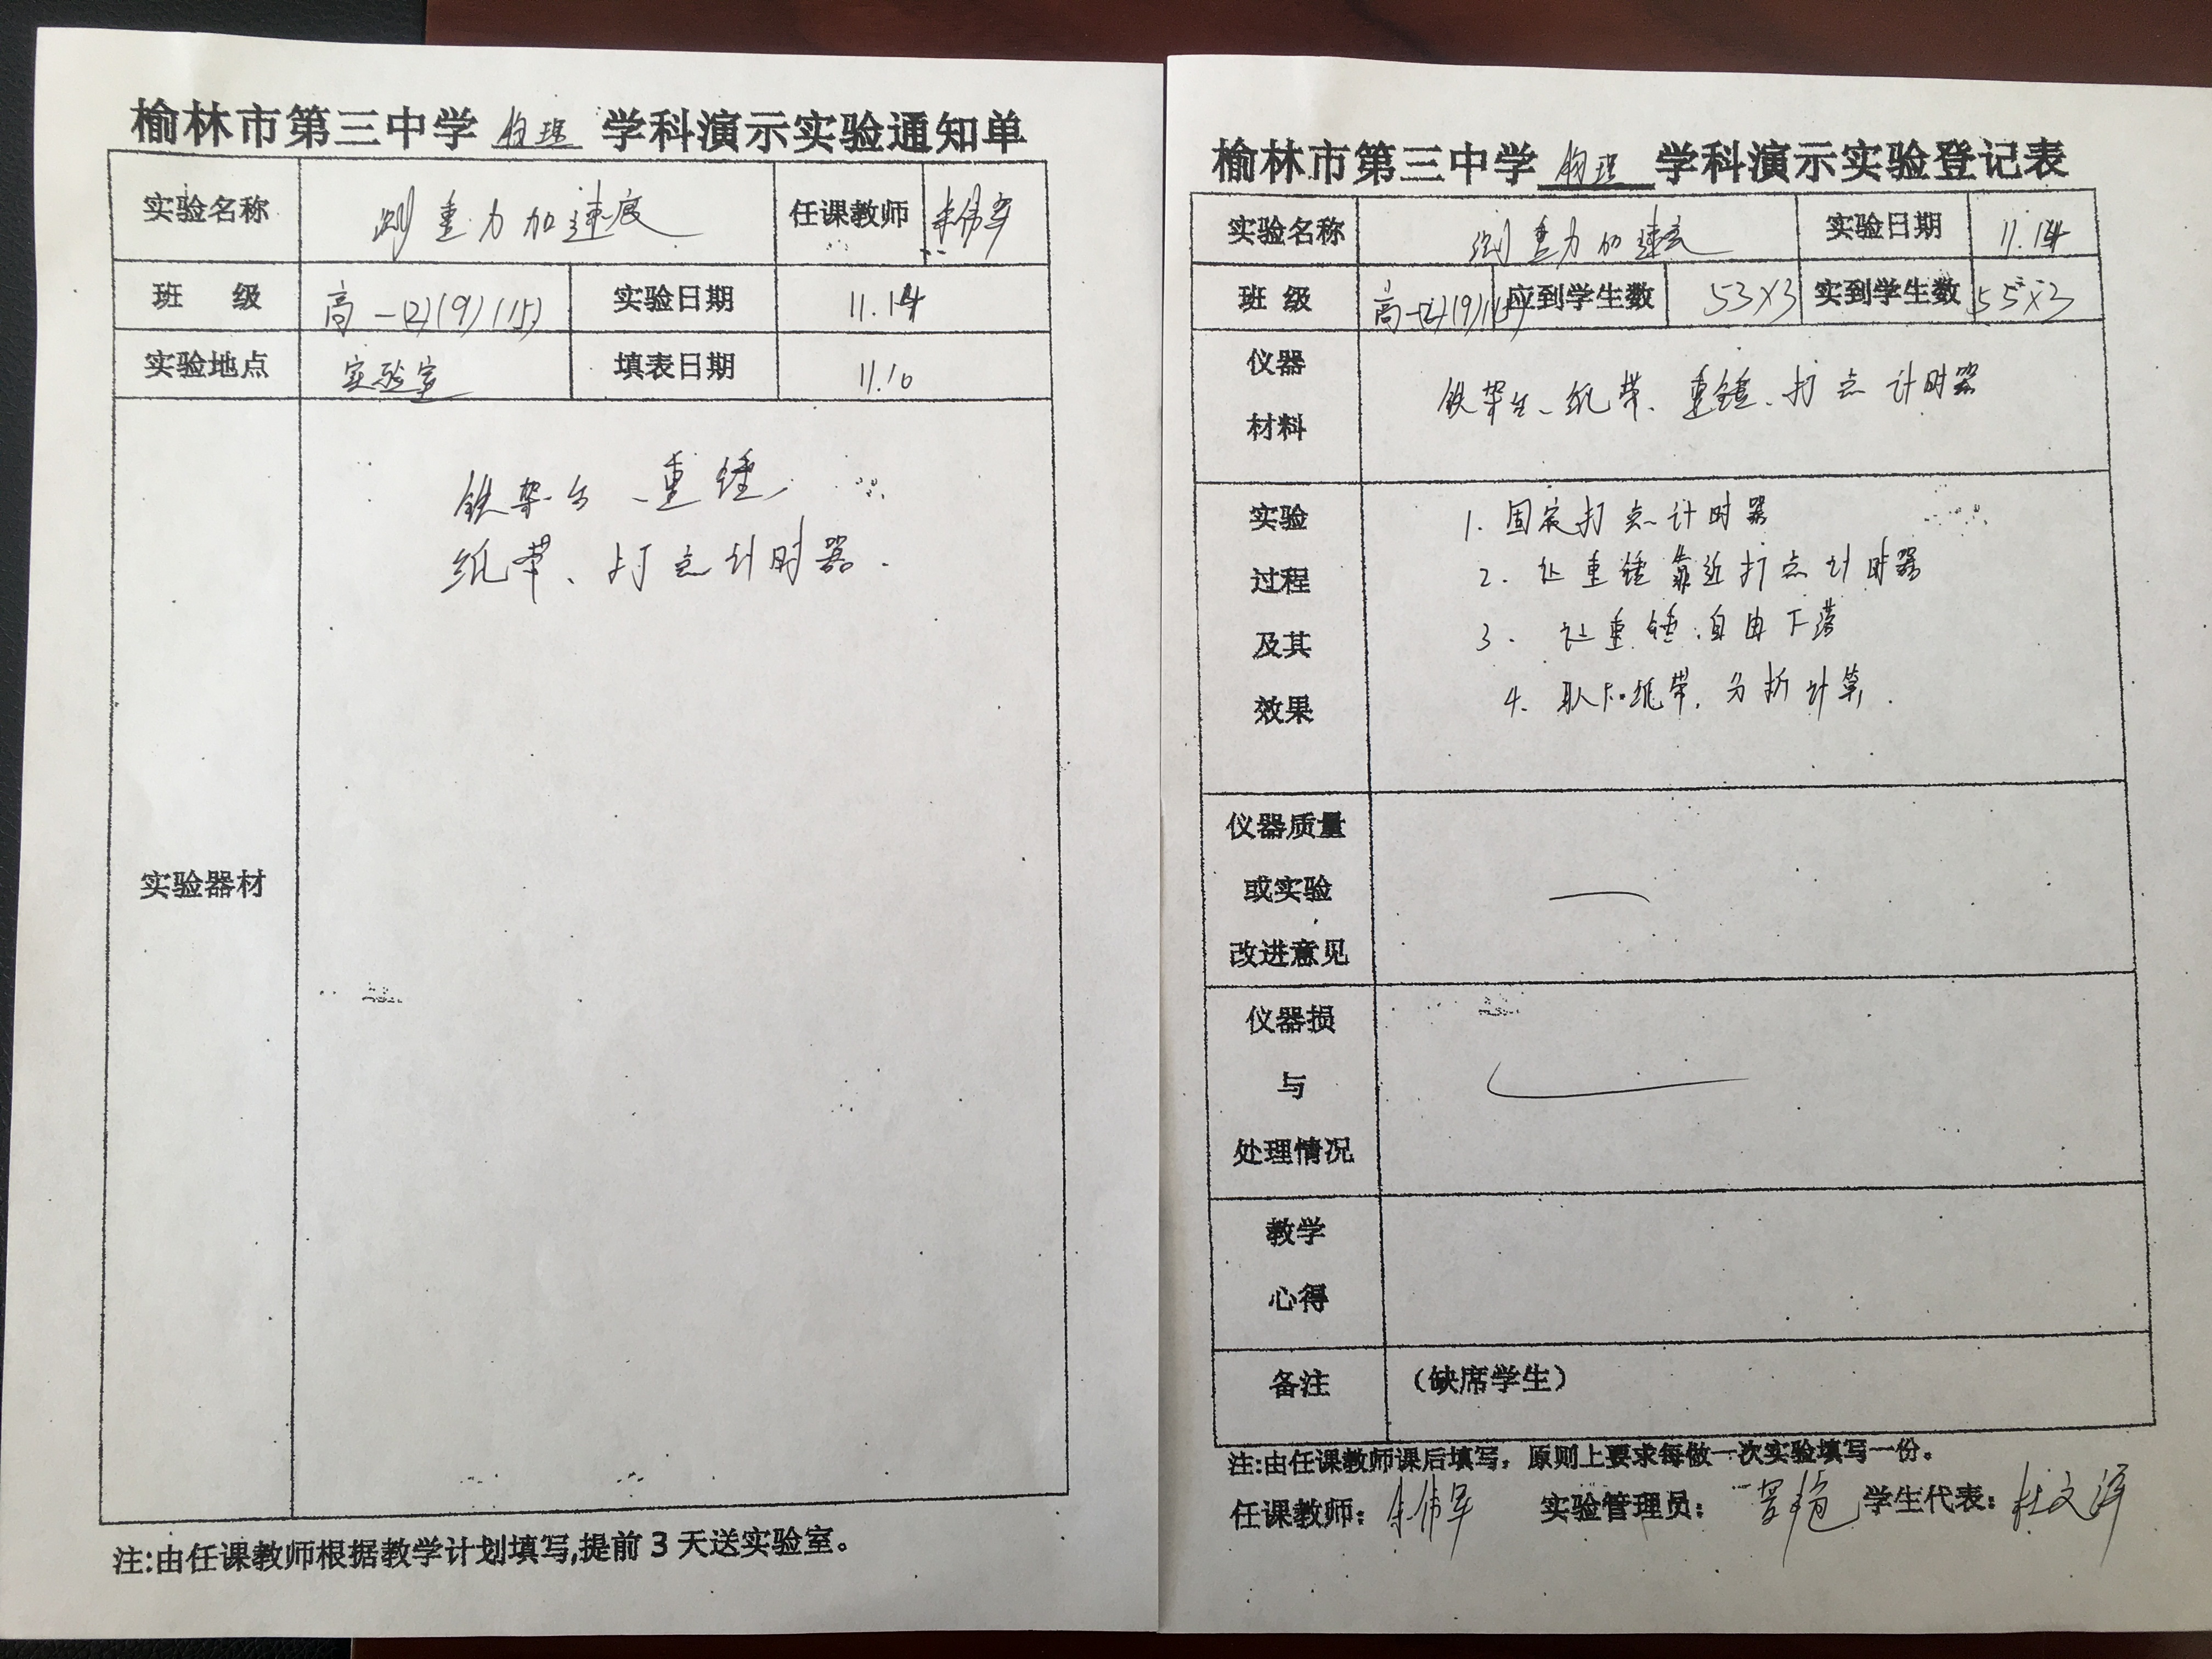 榆林市第三中学 物理 学科演示实验通知单
实验名称 测重力加速度 任课教师 朱伟军
班 级 高一(2)(9)(15) 实验日期 11.14
实验地点 实验室 填表日期 11.10
实验器材
铁架台、重锤、
纸带、打点计时器.
注:由任课教师根据教学计划填写,提前3天送实验室。
榆林市第三中学 物理 学科演示实验登记表
实验名称 测重力加速度 实验日期 11.14
班 级 高一(2)(9)(15) 应到学生数 53×3 实到学生数 55×3
仪器
材料
铁架台、纸带、重锤、打点计时器
实验
过程
及其
效果
1. 固定打点计时器
2. 让重锤靠近打点计时器
3. 让重锤自由下落
4. 取下纸带,分析计算.
仪器质量
或实验
改进意见
仪器损
与
处理情况
教学
心得
备注 (缺席学生)
注:由任课教师课后填写,原则上要求每做一次实验填写一份。
任课教师: 朱伟军 实验管理员: 学生代表: 杜文泽